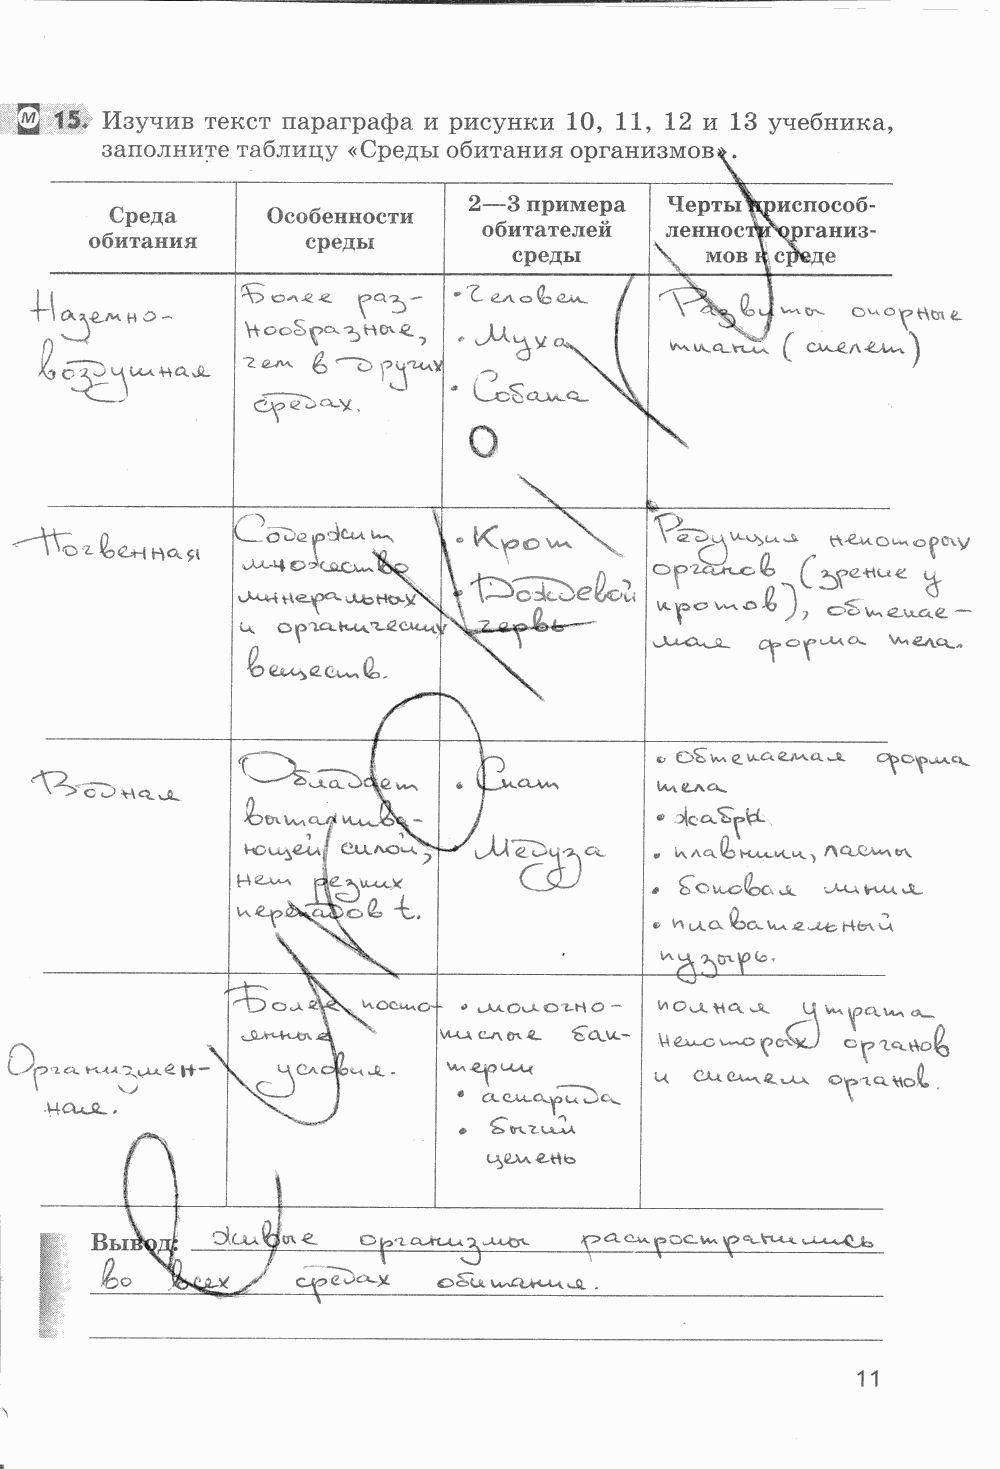 М 15. Изучив текст параграфа и рисунки 10, 11, 12 и 13 учебника,
заполните таблицу «Среды обитания организмов».
Среда
обитания
Особенности
среды
2—3 примера
обитателей
среды
Черты приспособ-
ленности организ-
мов к среде
Наземно-
воздушная
Более раз-
нообразные,
чем в других
средах.
• Человек
• Муха
• Собака
Развиты опорные
ткани (скелет)
Почвенная
Содержит
множество
минеральных
и органических
веществ.
• Крот
• Дождевой
червь
Редукция некоторых
органов (зрение у
кротов), обтекае-
мая форма тела.
Водная
Обладает
выталкива-
ющей силой,
нет резких
перепадов t.
• Скат
• Медуза
• обтекаемая форма
тела
• жабры
• плавники, ласты
• боковая линия
• плавательный
пузырь.
Организмен-
ная.
Более посто-
янные
условия.
• молочно-
кислые бак-
терии
• аскарида
• бычий
цепень
полная утрата
некоторых органов
и систем органов.
Вывод: живые организмы распространились
во всех средах обитания.
11